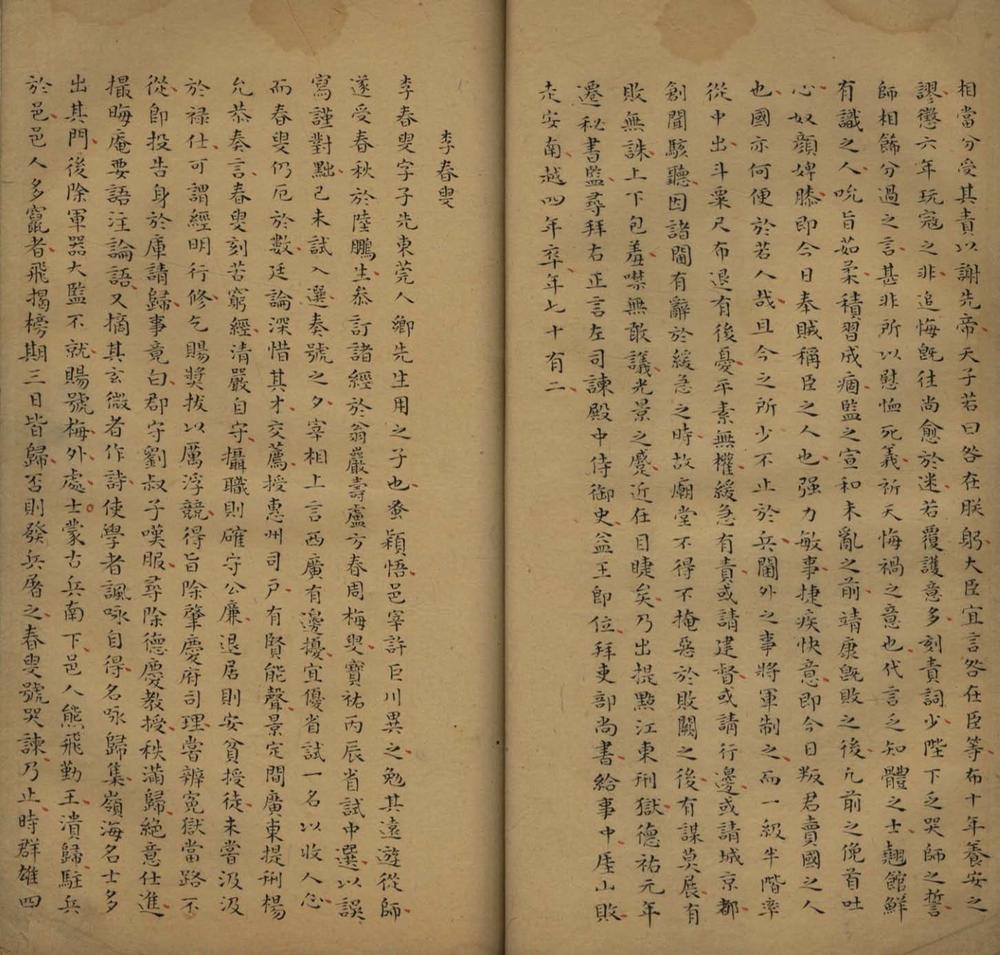 相當分受其責以謝先帝天子若曰咎在朕躬大臣宜言咎在臣等布十年養安之
謬懲六年玩寇之非追悔旣往尚愈於迷若覆護意多刻責詞少陛下乏哭師之誓
師相飾分過之言甚非所以慰恤死義祈天悔禍之意也代言乏知體之士翹館鮮
有識之人吮旨茹柔積習成痼監之宣和未亂之前靖康旣敗之後凢前之俛首吐
心奴顏婢膝即今日奉賊稱臣之人也强力敏事捷疾快意即今日叛君賣國之人
也國亦何便於若人哉且今之所少不止於兵閫外之事將軍制之而一級半階率
從中出斗粟尺布退有後憂平素無權緩急有責或請建督或請行邊或請城京都
創聞駭聽因諸閫有辭於緩急之時故廟堂不得不掩惡於敗闕之後有謀莫展有
敗無誅上下包羞噤無敢議光景之蹙近在目睫矣乃出提點江東刑獄德祐元年
遷秘書監尋拜右正言左司諫殿中侍御史益王即位拜吏部尚書給事中厓山敗
走安南越四年卒年七十有二
李春叟
李春叟字子先東莞人鄉先生用之子也蚤穎悟邑宰許巨川異之勉其遠遊從師
遂受春秋於陸鵬生叅訂諸經於翁巖壽盧方春周梅叟寶祐丙辰省試中選以誤
寫謹對黜己未試入選奏號之夕宰相上言西廣有邊擾宜優省試一名以收人心
而春叟仍厄於數廷論深惜其才交薦授惠州司戶有賢能聲景定間廣東提刑楊
允恭奏言春叟刻苦窮經清嚴自守攝職則確守公廉退居則安貧授徒未嘗汲汲
於禄仕可謂經明行修乞賜獎拔以厲浮競得旨除肇慶府司理嘗辨寃獄當路不
從即投告身於庫請歸事竟白郡守劉叔子嘆服尋除德慶教授秩滿歸絕意仕進
撮晦庵要語注論語又摘其玄微者作詩使學者諷咏自得名咏歸集嶺海名士多
出其門後除軍器大監不就賜號梅外處士蒙古兵南下邑人熊飛勤王潰歸駐兵
於邑邑人多竄者飛揭榜期三日皆歸否則發兵屠之春叟號哭諫乃止時群雄四